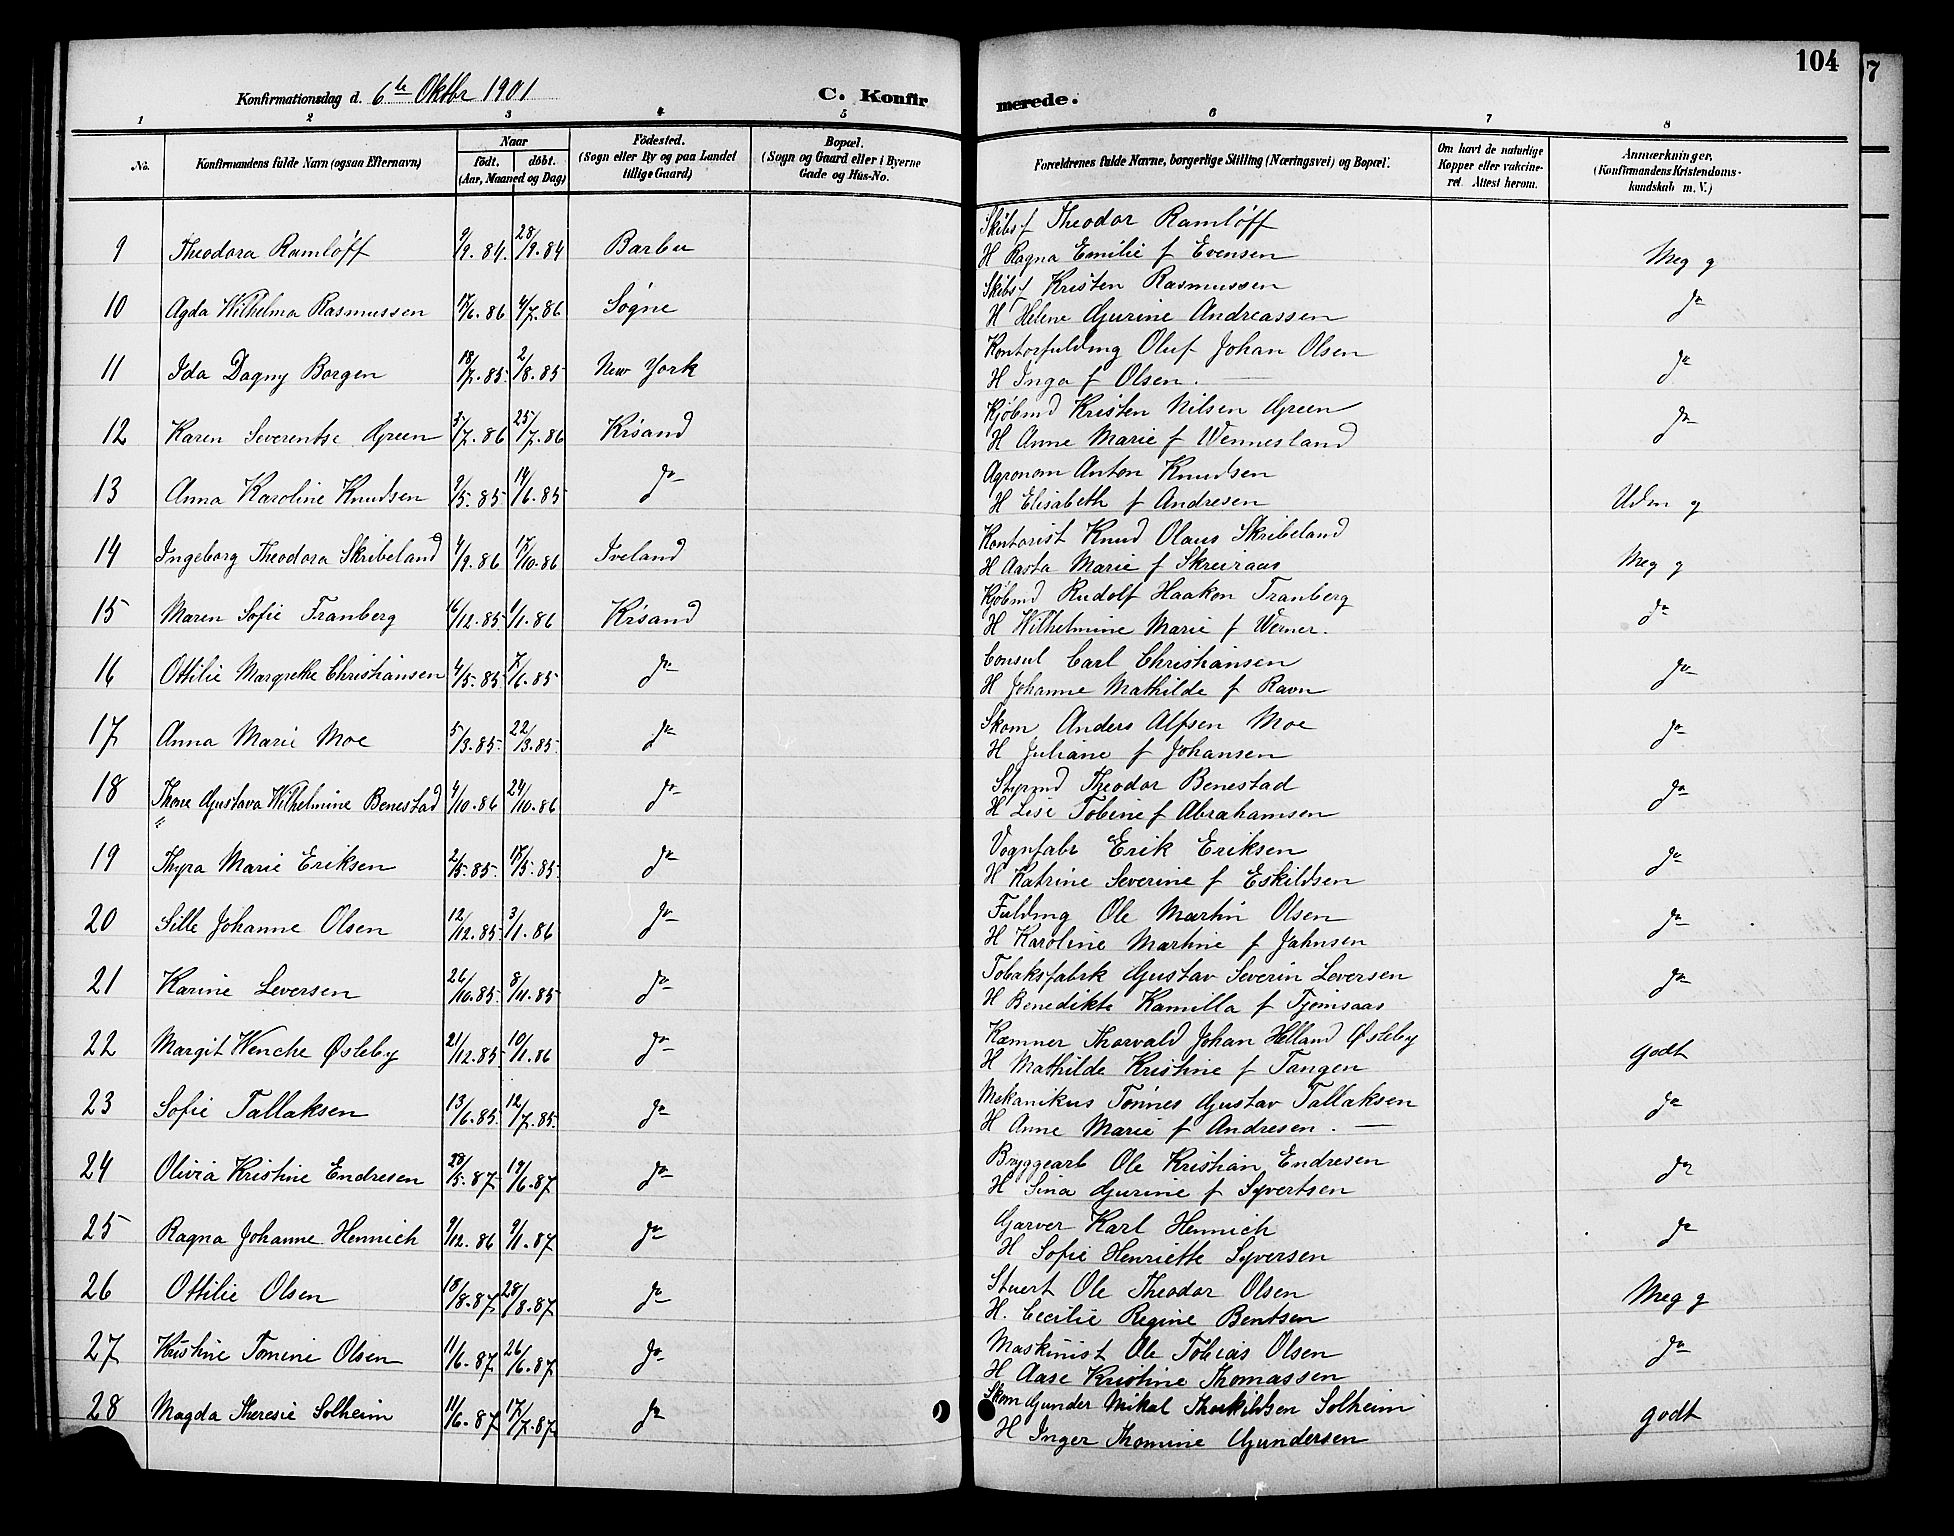 104
7
Konfirmationsdag d. 6te Oktbr 1901
C. Konfirmerede.
1 2 3 4 5 6 7 8
No.
Konfirmandens fulde Navn (ogsaa Efternavn)
Naar
födt. döbt.
(Aar, Maaned og Dag)
Födested.
(Sogn eller By og paa Landet
tillige Gaard)
Bopæl.
(Sogn og Gaard eller i Byerne
Gade og Hus-No.
Forældrenes fulde Navne, borgerlige Stilling (Næringsvei) og Bopæl.
Om havt de naturlige
Kopper eller vakcine-
ret. Attest herom.
Anmærkninger.
(Konfirmandens Kristendoms-
kundskab m. V.)
9 Theodora Ramløff 9/9.84. 28/9.84 Barbu Skibsf Theodor Ramløff
H Ragna Emilie f Evensen Meg g
10 Agda Wilhelma Rasmussen 17/6.86 4/7.86 Søgne Skibsf Kristen Rasmussen
H Helene Gurine Andreassen do
11 Ida Dagny Borgen 18/7.85. 2/8.85 New York Kontorfuldmg Oluf Johan Olsen
H Inga f Olsen. do
12 Karen Severentse Green 3/7.86 25/7.86 Krsand Kjøbmd Kristen Nilsen Green
H Anne Marie f Wennesland do
13 Anna Karoline Knudsen 9/5.85 14/6.85 do Agronom Anton Knudsen
H Elisabeth f Andresen Uden g
14 Ingeborg Theodora Skribeland 4/9.86 17/10.86 Iveland Kontorist Knud Olaus Skribeland
H Aasta Marie f Skreiraas Meg g
15 Maren Sofie Tranberg 16/12.85. 1/1.86 Krsand Kjøbmd Rudolf Haakon Tranberg
H Wilhelmine Marie f Werner. do
16 Ottilie Margrethe Christiansen 4/5.85 7/6.85 do Consul Carl Christiansen
H Johanne Mathilde f Ravn do
17 Anna Marie Moe 5/3.85. 22/3.85. do Skom Anders Alfsen Moe
H Juliane f Johansen do
18 Thora Gustava Wilhelmine Benestad 4/10.86 24/10.86 do Styrmd Theodor Benestad
H Lise Tobine f Abrahamsen do
19 Thyra Marie Eriksen 2/5.85. 17/5.85. do Vognfabr Erik Eriksen
H Katrine Severine f Eskildsen do
20 Sille Johanne Olsen 12/12.85 3/1.86 do Fuldmg Ole Martin Olsen
H Karoline Martine f Jahnsen do
21 Karine Leversen 26/10.85. 8/11.85 do Tobaksfabrk Gustav Severin Leversen
H Benedikte Kamilla f Tjomsaas do
22 Margit Wenche Østeby 21/12.85 10/1.86 do Kæmner Thorvald Johan Helland Østeby
H Mathilde Kristine f Tangen godt
23 Sofie Tallaksen 13/6.85. 12/7.85. do Mekanikus Tønnes Gustav Tallaksen
H Anne Marie f Andresen. do
24 Olivia Kristine Endresen 28/5.87 19/6.87 do Bryggearb Ole Kristian Endresen
H Sina Gurine f Syvertsen do
25 Ragna Johanne Hennich 9/12.86 9/1.87 do Garver Karl Hennich
H Sofie Henriette Syversen do
26 Ottilie Olsen 18/8.87 28/8.87 do Stuert Ole Theodor Olsen
H. Cecilie Regine Bentsen Meg g
27 Kristine Tomine Olsen 11/6.87 26/6.87 do Maskinist Ole Tobias Olsen
H Aase Kristine Thomassen do
28 Magda Theresie Solheim 11/6.87 17/7.87 do Skom Gunder Mikal Thorkildsen Solheim
H Inger Thomine Gundersen godt